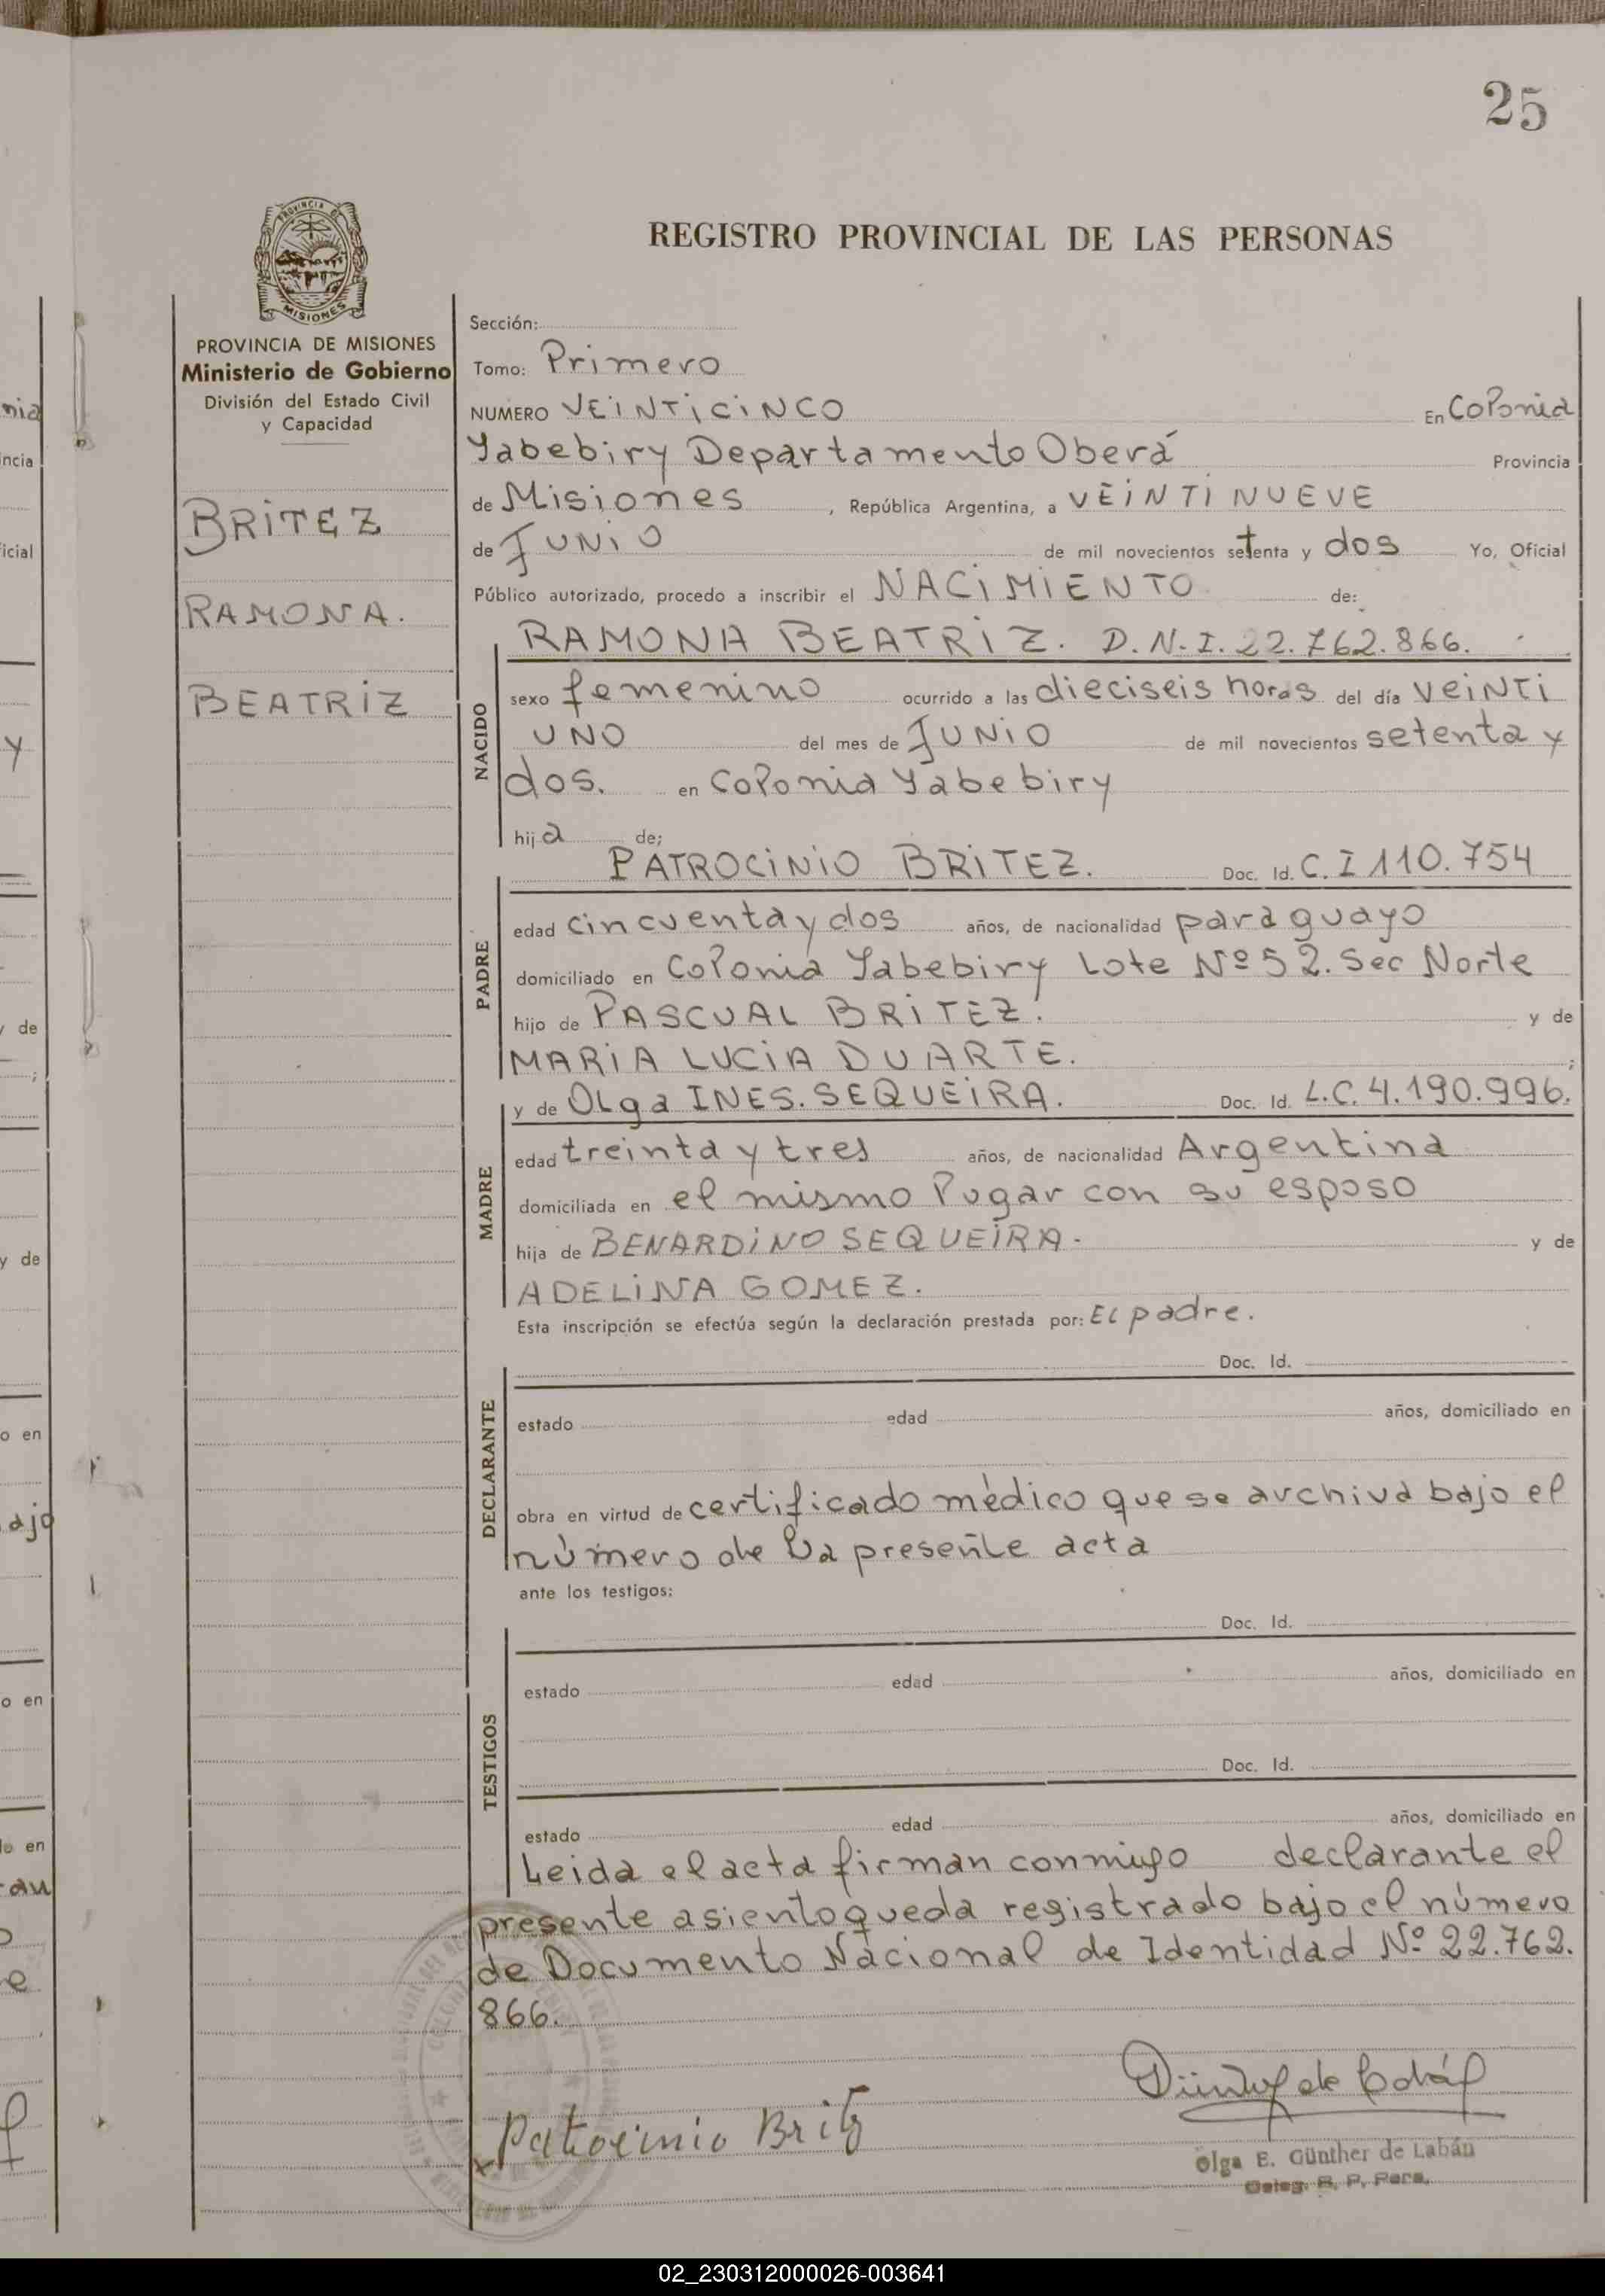 25
PROVINCIA DE
MISIONES
PROVINCIA DE MISIONES
Ministerio de Gobierno
División del Estado Civil
y Capacidad
BRITEZ
RAMONA.
BEATRIZ
REGISTRO PROVINCIAL DE LAS PERSONAS
Sección:
Tomo: Primero
NUMERO VEINTICINCO En Colonia
Yabebiry Departamento Oberá Provincia
de Misiones, República Argentina, a VEINTI NUEVE
de JUNIO de mil novecientos setenta y dos Yo, Oficial
Público autorizado, procedo a inscribir el NACIMIENTO de:
RAMONA BEATRIZ. D.N.I. 22.762.866.
NACIDO
sexo femenino ocurrido a las dieciseis horas del día VEINTI
UNO del mes de JUNIO de mil novecientos setenta y
dos. en Colonia Yabebiry
hija de;
PATROCINIO BRITEZ. Doc. Id. C.I 110.754
PADRE
edad cincuenta y dos años, de nacionalidad paraguayo
domiciliado en Colonia Yabebiry Lote Nº 52. Sec Norte
hijo de PASCUAL BRITEZ. y de
MARIA LUCIA DUARTE. ;
y de OLga INES. SEQUEIRA. Doc. Id. L.C. 4.190.996.
MADRE
edad treinta y tres años, de nacionalidad Argentina
domiciliada en el mismo lugar con su esposo
hija de BENARDINO SEQUEIRA. y de
ADELINA GOMEZ.
Esta inscripción se efectúa según la declaración prestada por: EL padre.
Doc. Id.
DECLARANTE
estado edad años, domiciliado en
obra en virtud de certificado médico que se archiva bajo el
número de la presente acta
ante los testigos:
Doc. Id.
TESTIGOS
estado edad años, domiciliado en
Doc. Id.
estado edad años, domiciliado en
Leida el acta firman conmigo declarante el
presente asiento queda registrado bajo el número
de Documento Nacional de Identidad Nº 22.762.
866.
x Patrocinio Britez
Olga E. Günther de Labán
Deleg. R. P. Pers.
02_230312000026-003641